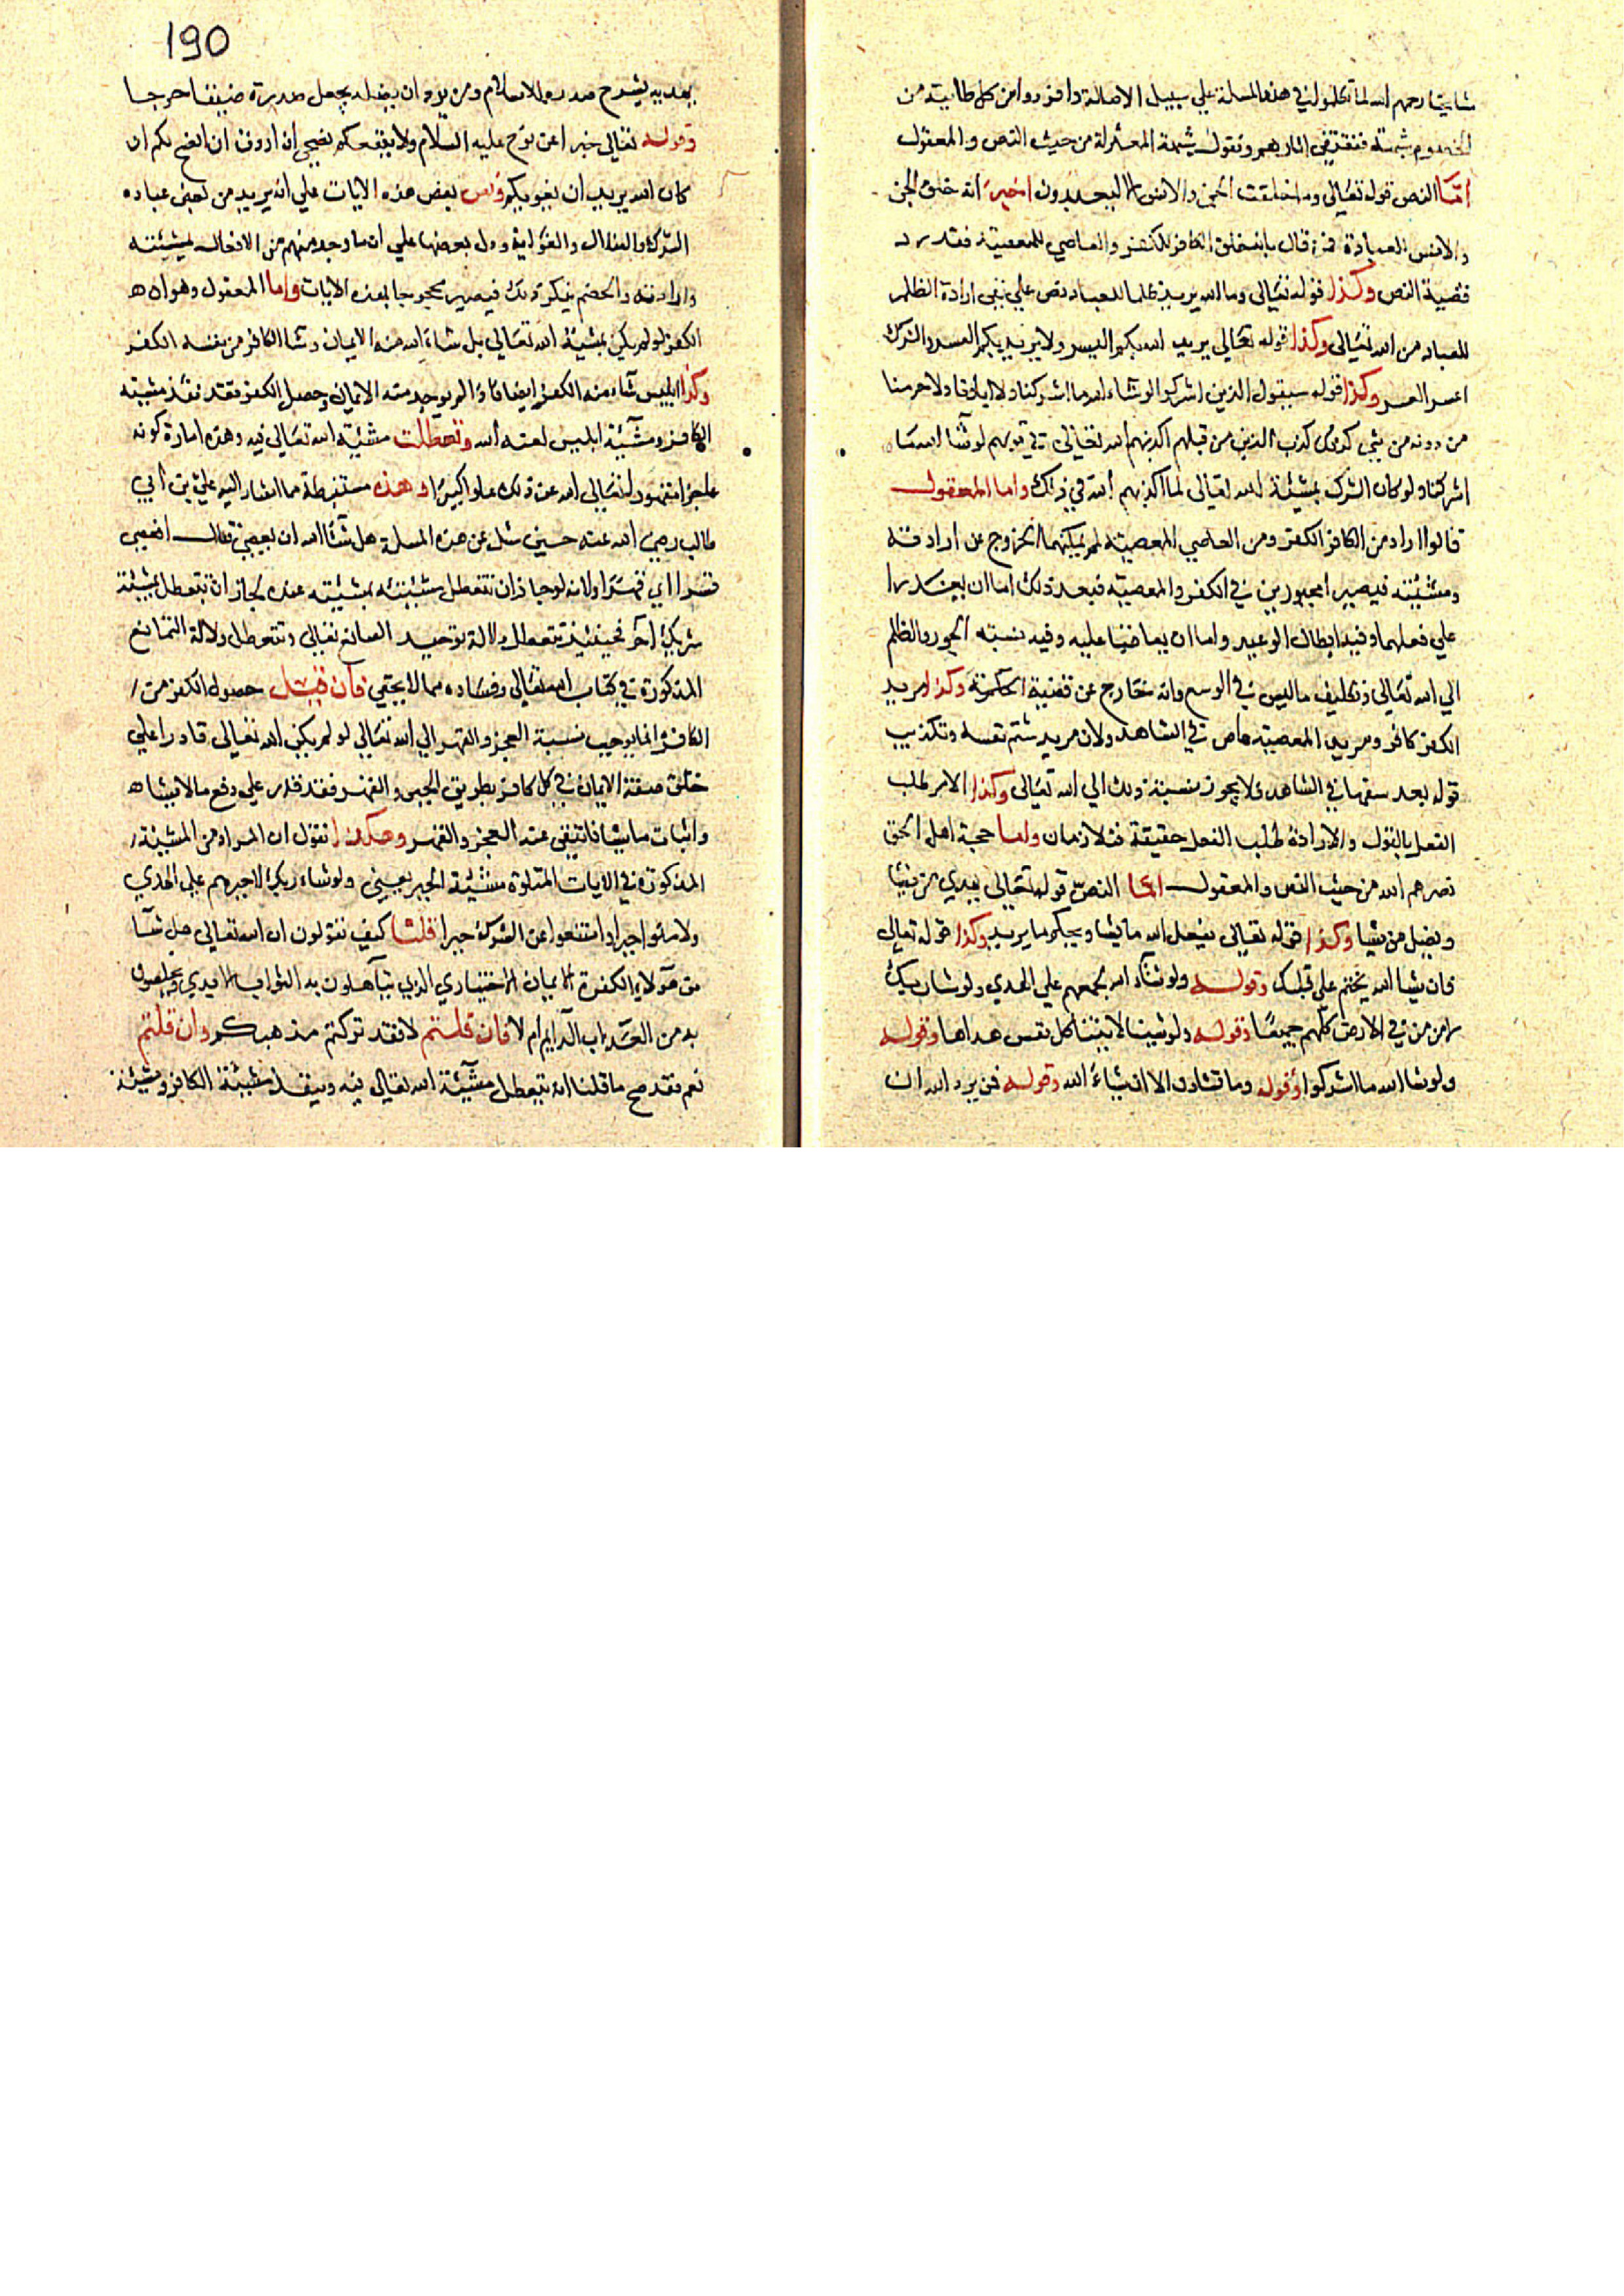 شايخنا رحمهم الله لما تكلموا في هذه المسلة علي سبيل الاصالة وافردوا من كل طايبة من
الخصوم شبهته فنقتفي اثارهم ونقول شبهة المعتزلة من حيث النص والمعقول
اما النص قوله تعالي وما خلقت الجن والانس الا ليعبدون اخبر انه خلق الجن
والانس للعبادة فمن قال بانه خلق الكافر للكفر والعاصي للمعصية فقد رد
قضية النص وكذا قوله تعالي وما الله يريد ظلما للعباد نص علي نفي ارادة الظلم
للعباد من الله تعالي وكذا قوله تعالي يريد الله بكم اليسر ولا يريد بكم العسر والشرك
اعسر العسر وكذا قوله سيقول الذين اشركوا لو شاء الله ما اشركنا ولا اباؤنا ولا حرمنا
من دونه من شي كذلك كذب الذين من قبلهم اكذبهم الله تعالي في قولهم لو شا الله ما
اشركنا ولو كان الشرك بمشيئة الله تعالي لما اكذبهم الله في ذلك واما المعقول
قالوا اراد من الكافر الكفر ومن العاصي المعصية لم يمكنهما الخروج عن ارادته
ومشيئته فيصيرا مجبورين في الكفر والمعصية فبعد ذلك اما ان يعذرا
علي فعلهما وفيه ابطال الوعيد واما ان يعاقبا عليه وفيه نسبة الجور والظلم
الي الله تعالي وتكليف ما ليس في الوسع وانه خارج عن قضية الحكمة وكذا مريد
الكفر كافر ومريد المعصية عاص في الشاهد ولان مريد شتم نفسه وتكذيب
قوله يعد سفيها في الشاهد ولا يجوز نسبة ذلك الي الله تعالي وكذا الامر طلب
الفعل بالقول والارادة طلب الفعل حقيقة فتلازمان واما حجة اهل الحق
نصرهم الله من حيث النص والمعقول اما النص قوله تعالي يهدي من يشا
ويضل من يشا وكذا قوله تعالي يفعل الله ما يشا ويحكم ما يريد وكذا قوله تعالي
فان يشا الله يختم علي قبلك وقوله ولو شاء الله لجمعهم علي الهدي ولو شا ربك
لامن من في الارض كلهم جميعا وقوله ولو شينا لاتينا كل نفس هداها وقوله
ولو شا الله ما اشركوا وقوله وما تشاون الا ان يشاء الله وقوله فمن يرد الله ان
190
يهديه يشرح صدره للاسلام ومن يرد ان يضله يجعل صدره ضيقا حرجا
وقوله تعالي خبرا عن نوح عليه السلام ولا ينفعكم نصحي ان اردت ان انصح لكم ان
كان الله يريد ان يغويكم ونص بعض هذه الايات علي انه يريد من بعض عباده
الشرك والضلال والغواية ودل بعضها علي ان ما وجد منهم من الافعال بمشيئته
وارادته والخصم ينكر ذلك فيصير محجوجا بهذه الايات واما المعقول وهو ان ه
الكفر لو لم يكن بمشيئة الله تعالي بل شاء الله منه الايمان وشا الكافر من نفسه الكفر
وكذا ابليس شاء منه الكفر ايضا فاذا لم يوجد منه الايمان وحصل الكفر فقد نفذ مشيئته
الكافر ومشيئة ابليس لعنه الله وتعطلت مشيئة الله تعالي فيه وهذه امارة كونه
عاجزا مقهورا تعالي الله عن ذلك علوا كبيرا وهذه مستنبطة مما اشار اليه علي بن ابي
طالب رضي الله عنه حين سئل عن هذه المسلة هل شاء الله ان يعصي فقال افيعصي
قسرا اي قهرا ولانه لو جاز ان تتعطل مشيئته بمشيئته عبده لجاز ان تتعطل بمشيئة
شريك اخر فحينئذ تتعطل دلالة توحيد الصانع تعالي وتتعطل دلالة التمانع
المذكورة في كتاب الله تعالي وفساده مما لا يخفي فان قيل حصول الكفر من
الكافر انما يوجب نسبة العجز والقهر الي الله تعالي لو لم يكن الله تعالي قادرا علي
خلق صفة الايمان في كل كافر بطريق الجبر والقهر فقد قدر علي دفع ما لا يشاه
واثبات ما يشا فانتفي عنه العجز والقهر وهكذا نقول ان المراد من المشيئة
المذكورة في الايات المتلوة مشيئة الجبر يعني ولو شاء ربك لاجبرهم علي الهدي
ولامنوا جبرا وامتنعوا عن الشرك جبرا قلنا كيف تقولون ان الله تعالي هل شا
من هولاء الكفرة الايمان الاختياري الذي يتاهلون به الثواب الابدي ويخلصون
به من العذاب الدايم ام لا فان قلتم لا فقد تركتم مذهبكم وان قلتم
نعم فقد صح ما قلنا انه يتعطل مشيئة الله تعالي فيه وينفذ مشيئة الكافر ومشيئة